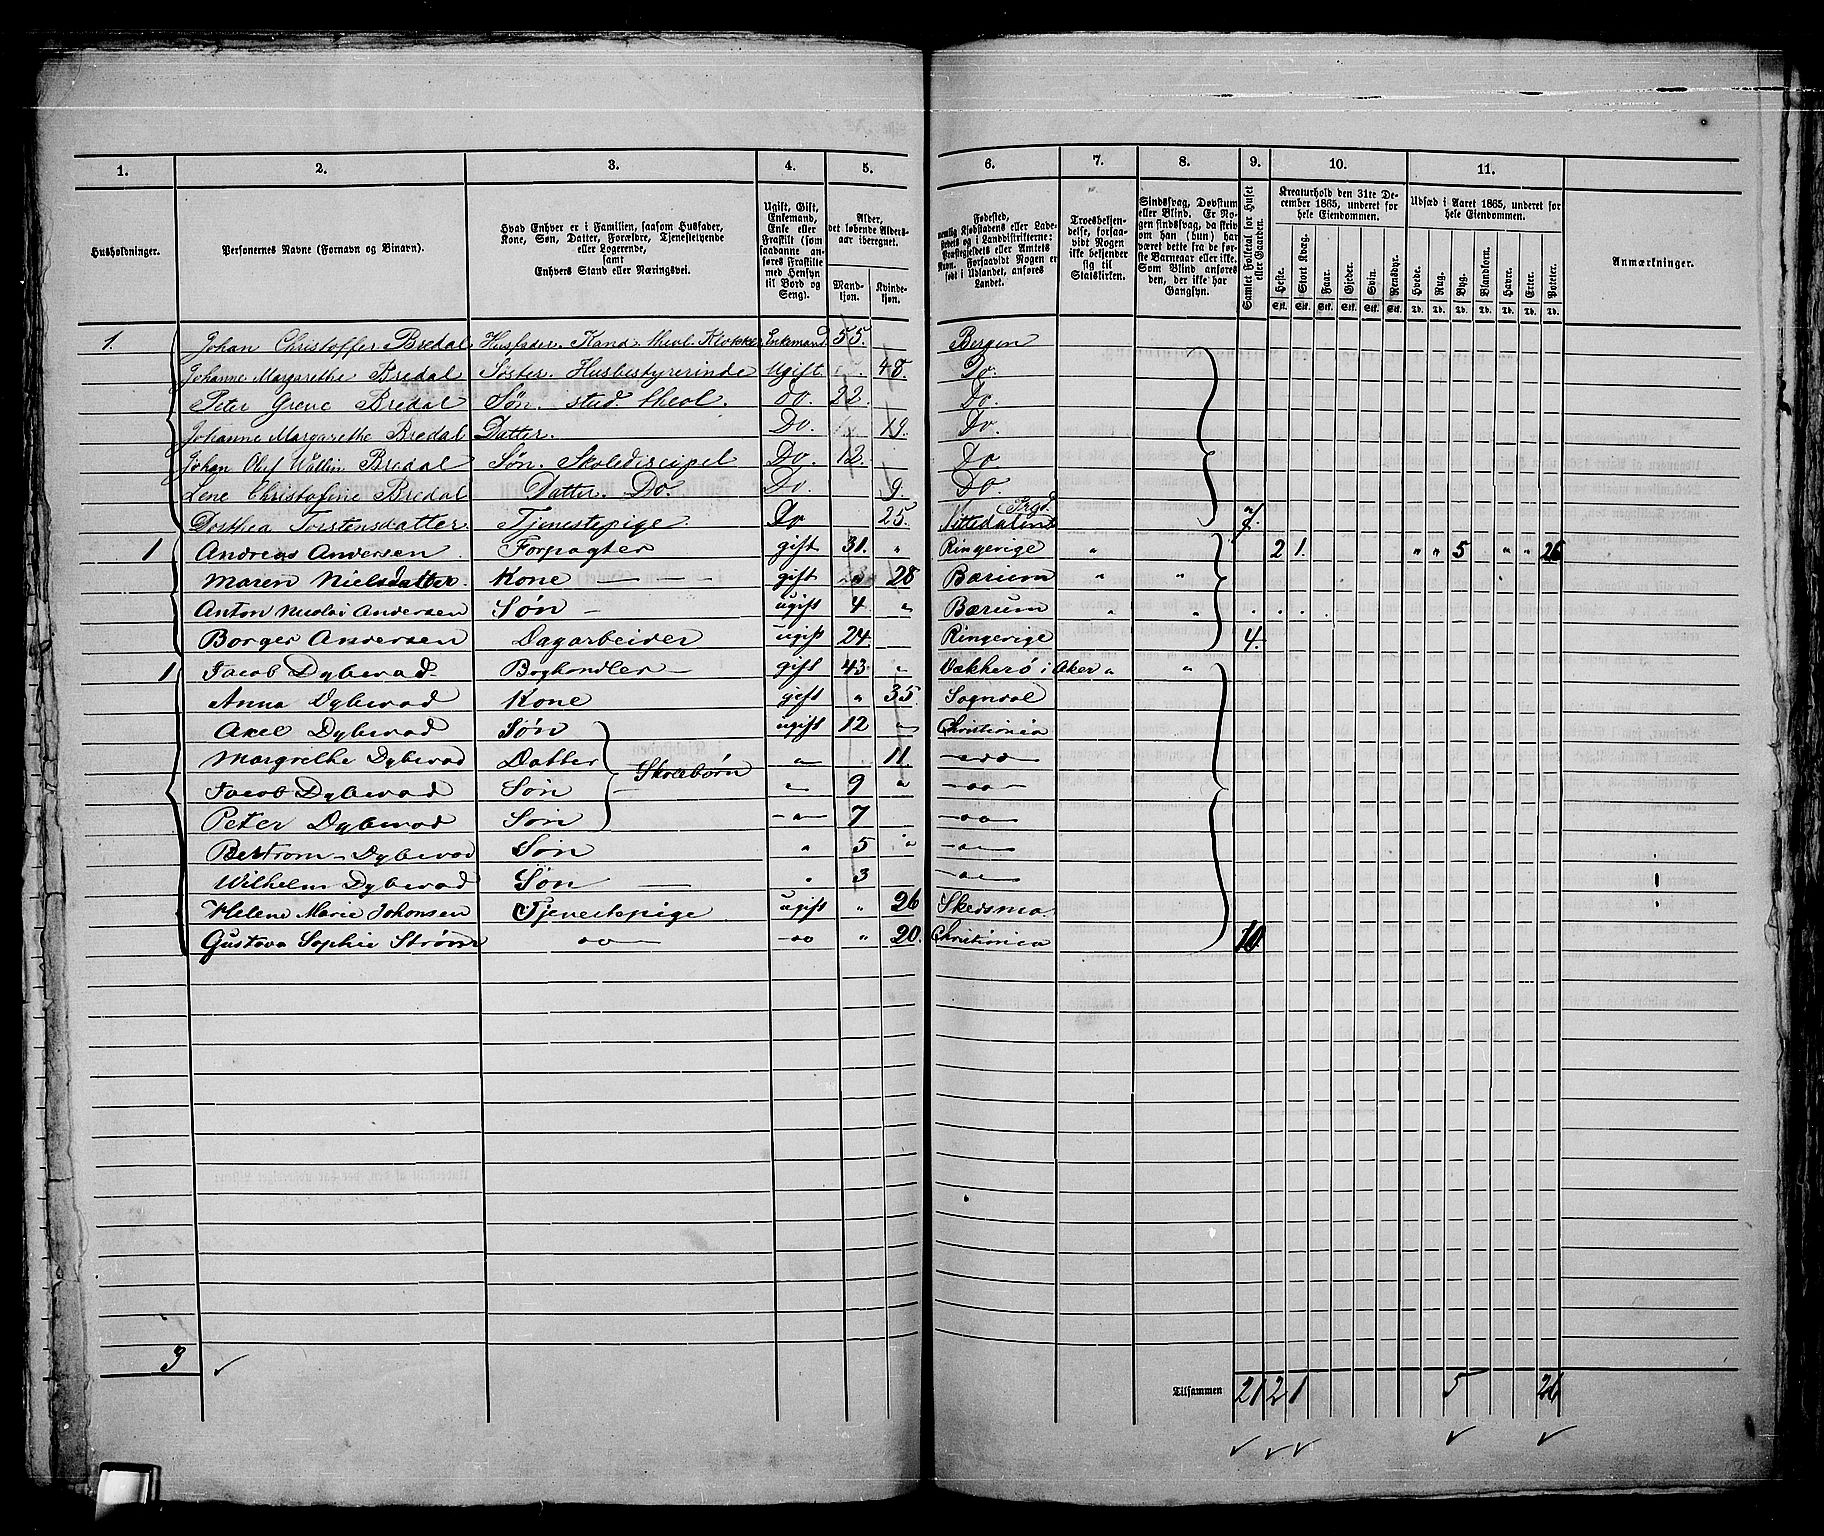 1. 2. 3. 4. 5. 6. 7. 8. 9. 10. 11.
Husholdninger.
Personernes Navne (Fornavn og Binavn).
Hvad Enhver er i Familien, saasom Husfader,
Kone, Søn, Datter, Forældre, Tjenestetyende
eller Logerende,
samt
Enhvers Stand eller Næringsvei.
Ugift, Gift,
Enkemand,
Enke eller
Fraskilt (som
saadanne an-
føres Fraskilte
med Hensyn
til Bord og
Seng).
Alder,
det løbende Alders-
aar iberegnet.
Mand-
kjøn.
Kvinde-
kjøn.
Fødested,
nemlig Kjøbstadens eller Lade-
stedets og i Landdistrikterne:
Præstegjeldets eller Amtets
Navn. Forsaavidt Nogen er
født i Udlandet, anføres
Landet.
Troesbekjen-
delse, forsaa-
vidt Nogen
ikke bekjender
sig til
Statskirken.
Sindssvag, Døvstum
eller Blind. Er No-
gen sindssvag, da skriv
om han (hun) har
været dette fra de før-
ste Barneaar eller ikke.
Som Blind anføres
den, der ikke har
Gangsyn.
Samlet Folketal for Huset
eller Gaarden.
Kreaturhold den 31te De-
cember 1865, underet for
hele Eiendommen.
Heste. Stort Kvæg. Faar. Gjeder. Svin. Rensdyr.
Stk. Stk. Stk. Stk. Stk. Stk.
Udsæd i Aaret 1865, underet for
hele Eiendommen.
Hvede. Rug. Byg. Blandkorn. Havre. Erter. Poteter.
Td. Td. Td. Td. Td. Td. Td.
Anmærkninger.
1. Johan Christoffer Bredal Husfader. Kand. theol. Klokker Enkemand 55. Bergen
Johanne Margarethe Bredal Søster. Husbestyrerinde Ugift. 48. Do.
Peter Greve Bredal Søn. stud. theol. Do. 22. Do.
Johanne Margarethe Bredal Datter. Do. 19. Do.
Johan Olaf Wallin Bredal Søn. Skolediscipel Do. 12. Do
Lene Christofine Bredal Datter. Do. Do. 9. Do.
Dorthea Torstensdatter Tjenestepige. Do 25. Nittedalens Prgd.
1 Andreas Andersen Forpagter gift 31. " Ringerige " 2 1. " " 5 " " 26
Maren Nielsdatter. Kone gift " 28 Bærum " "
Anton Nicolai Andersen Søn ugift 4 " Bærum " "
Borger Andersen Dagarbeider ugift 24. Ringerige 4.
1 Jacob Dybwad Boghandler gift 43. " Vækkerø i Aker " "
Anna Dybwad Kone gift " 35. Sogndal
Axel Dybwad Søn ugift 12 " Christiania
Margrethe Dybwad Datter Skolebørn " 11. do
Jacob Dybwad Søn " 9 " do
Peter Dybwad Søn " 7 do
Bertram Dybwad Søn " 5 " do
Wilhelm Dybwad Søn " 3 do
Helene Marie Johansen Tjenestepige ugift " 26 Skedsmo
Gustava Sophie Strøm do do " 20. Christiania 10.
3 Tilsammen 21 2 1 5 26